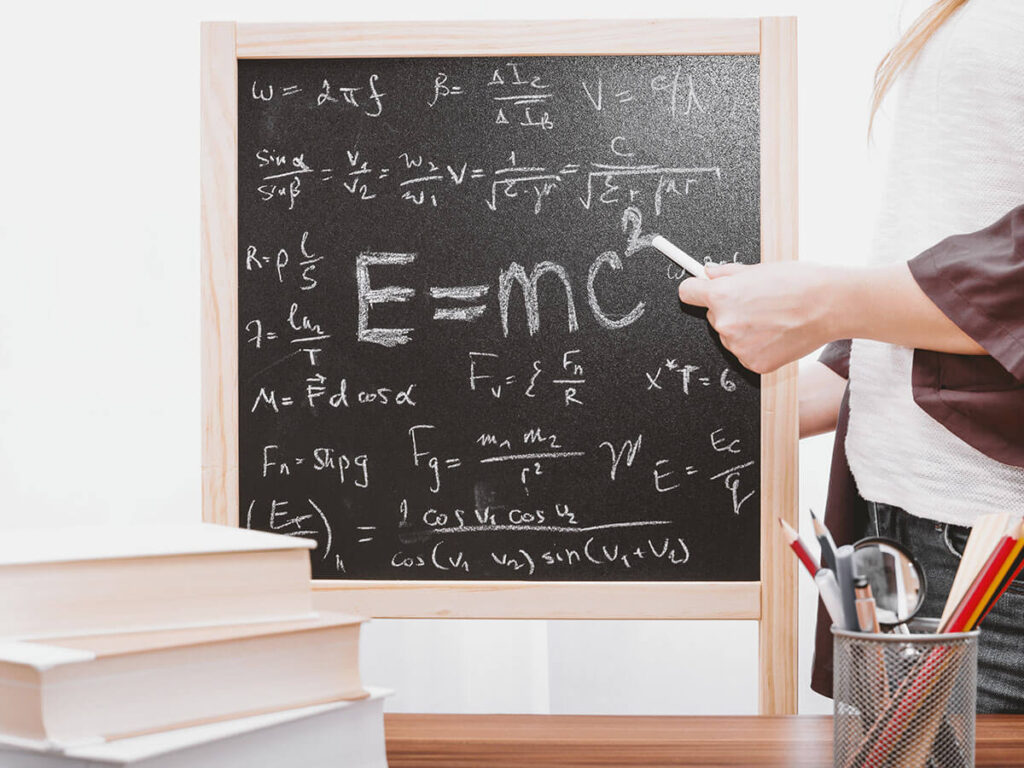 ω = 2πf β = ΔI₂/ΔI_β V = c/λ
sin α/sin β = v₁/v₂ = w₂/w₁ V = 1/√ε·μ = c/√εr μr
R = ρ l/S
E = mc²
M = F⃗ d cos α
Fᵥ = { Fₙ/R
x*T = 6
Fg = m₁ m₂/r²
E = Ec/q
= 1 cos v₁ cos v₂/cos(v₁ v₂) sin(v₁+v₂)